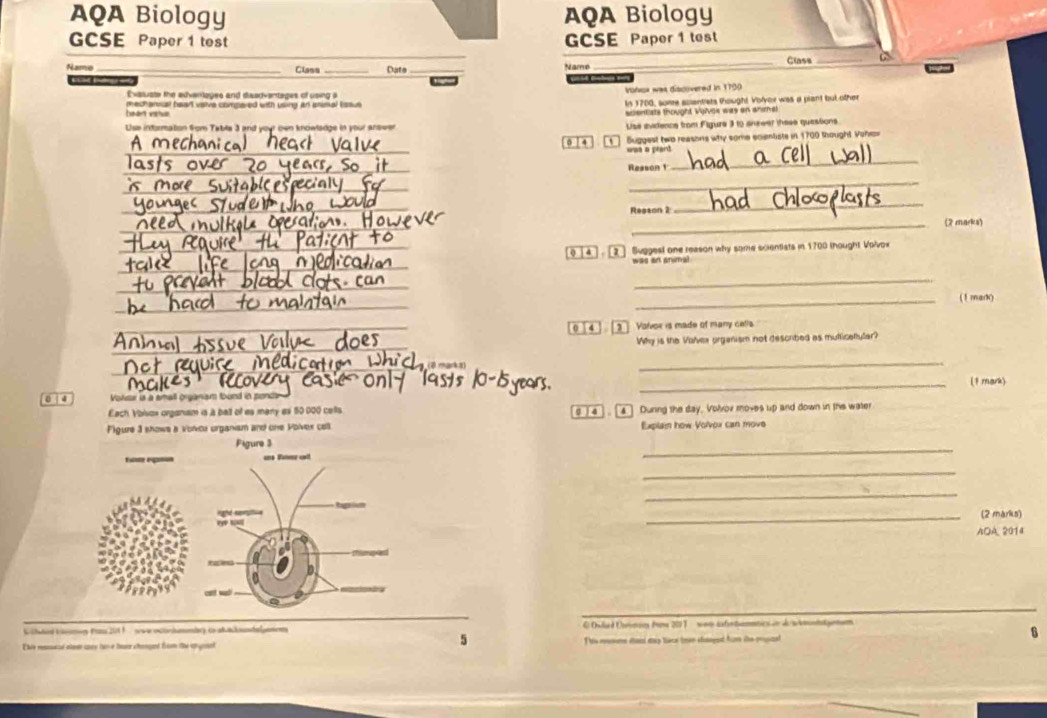 AQA Biology
GCSE Paper 1 test
Name Class Date
Higher
Evaluate the advantages and disadvantages of using a
mechanical heart valve compared with using an animal tissue
heart valve.
Use information from Table 3 and your own knowledge in your answer.
A mechanical heart valve
lasts over 20 years, so it
is more suitable especialy for
younger student who would
need multiple operations. However
they require the patient to
take life long medication
to prevent blood clots. can
be hard to maintain
Animal tissue Valve does
not require medication which
(6 marks)
makes recovery easier only lasts 10-15 years.
0 4 Volvox is a small organism found in ponds
Each Volvox organism is a ball of as many as 50 000 cells.
Figure 3 shows a Volvox organism and one Volvox cell.
Figure 3
Volvox organism one Volvox cell
light sensitive
eye spot
flagellum
nucleus
chloroplast
cell wall
mitochondrion
5
AQA Biology
GCSE Paper 1 test
Name Class
Higher
Volvox was discovered in 1700
In 1700, some scientists thought Volvox was a plant but other
scientists thought Volvox was an animal.
Use evidence from Figure 3 to answer these questions.
0 4 . 1 Suggest two reasons why some scientists in 1700 thought Volvox
was a plant.
Reason 1: had a cell wall
Reason 2: had Chloroplasts
(2 marks)
0 4 . 2 Suggest one reason why some scientists in 1700 thought Volvox
was an animal.
(1 mark)
0 4 . 3 Volvox is made of many cells.
Why is the Volvox organism not described as multicellular?
(1 mark)
0 4 . 4 During the day, Volvox moves up and down in the water.
Explain how Volvox can move
(2 marks)
AQA, 2014
This resource sheet may have been changed from the original
6